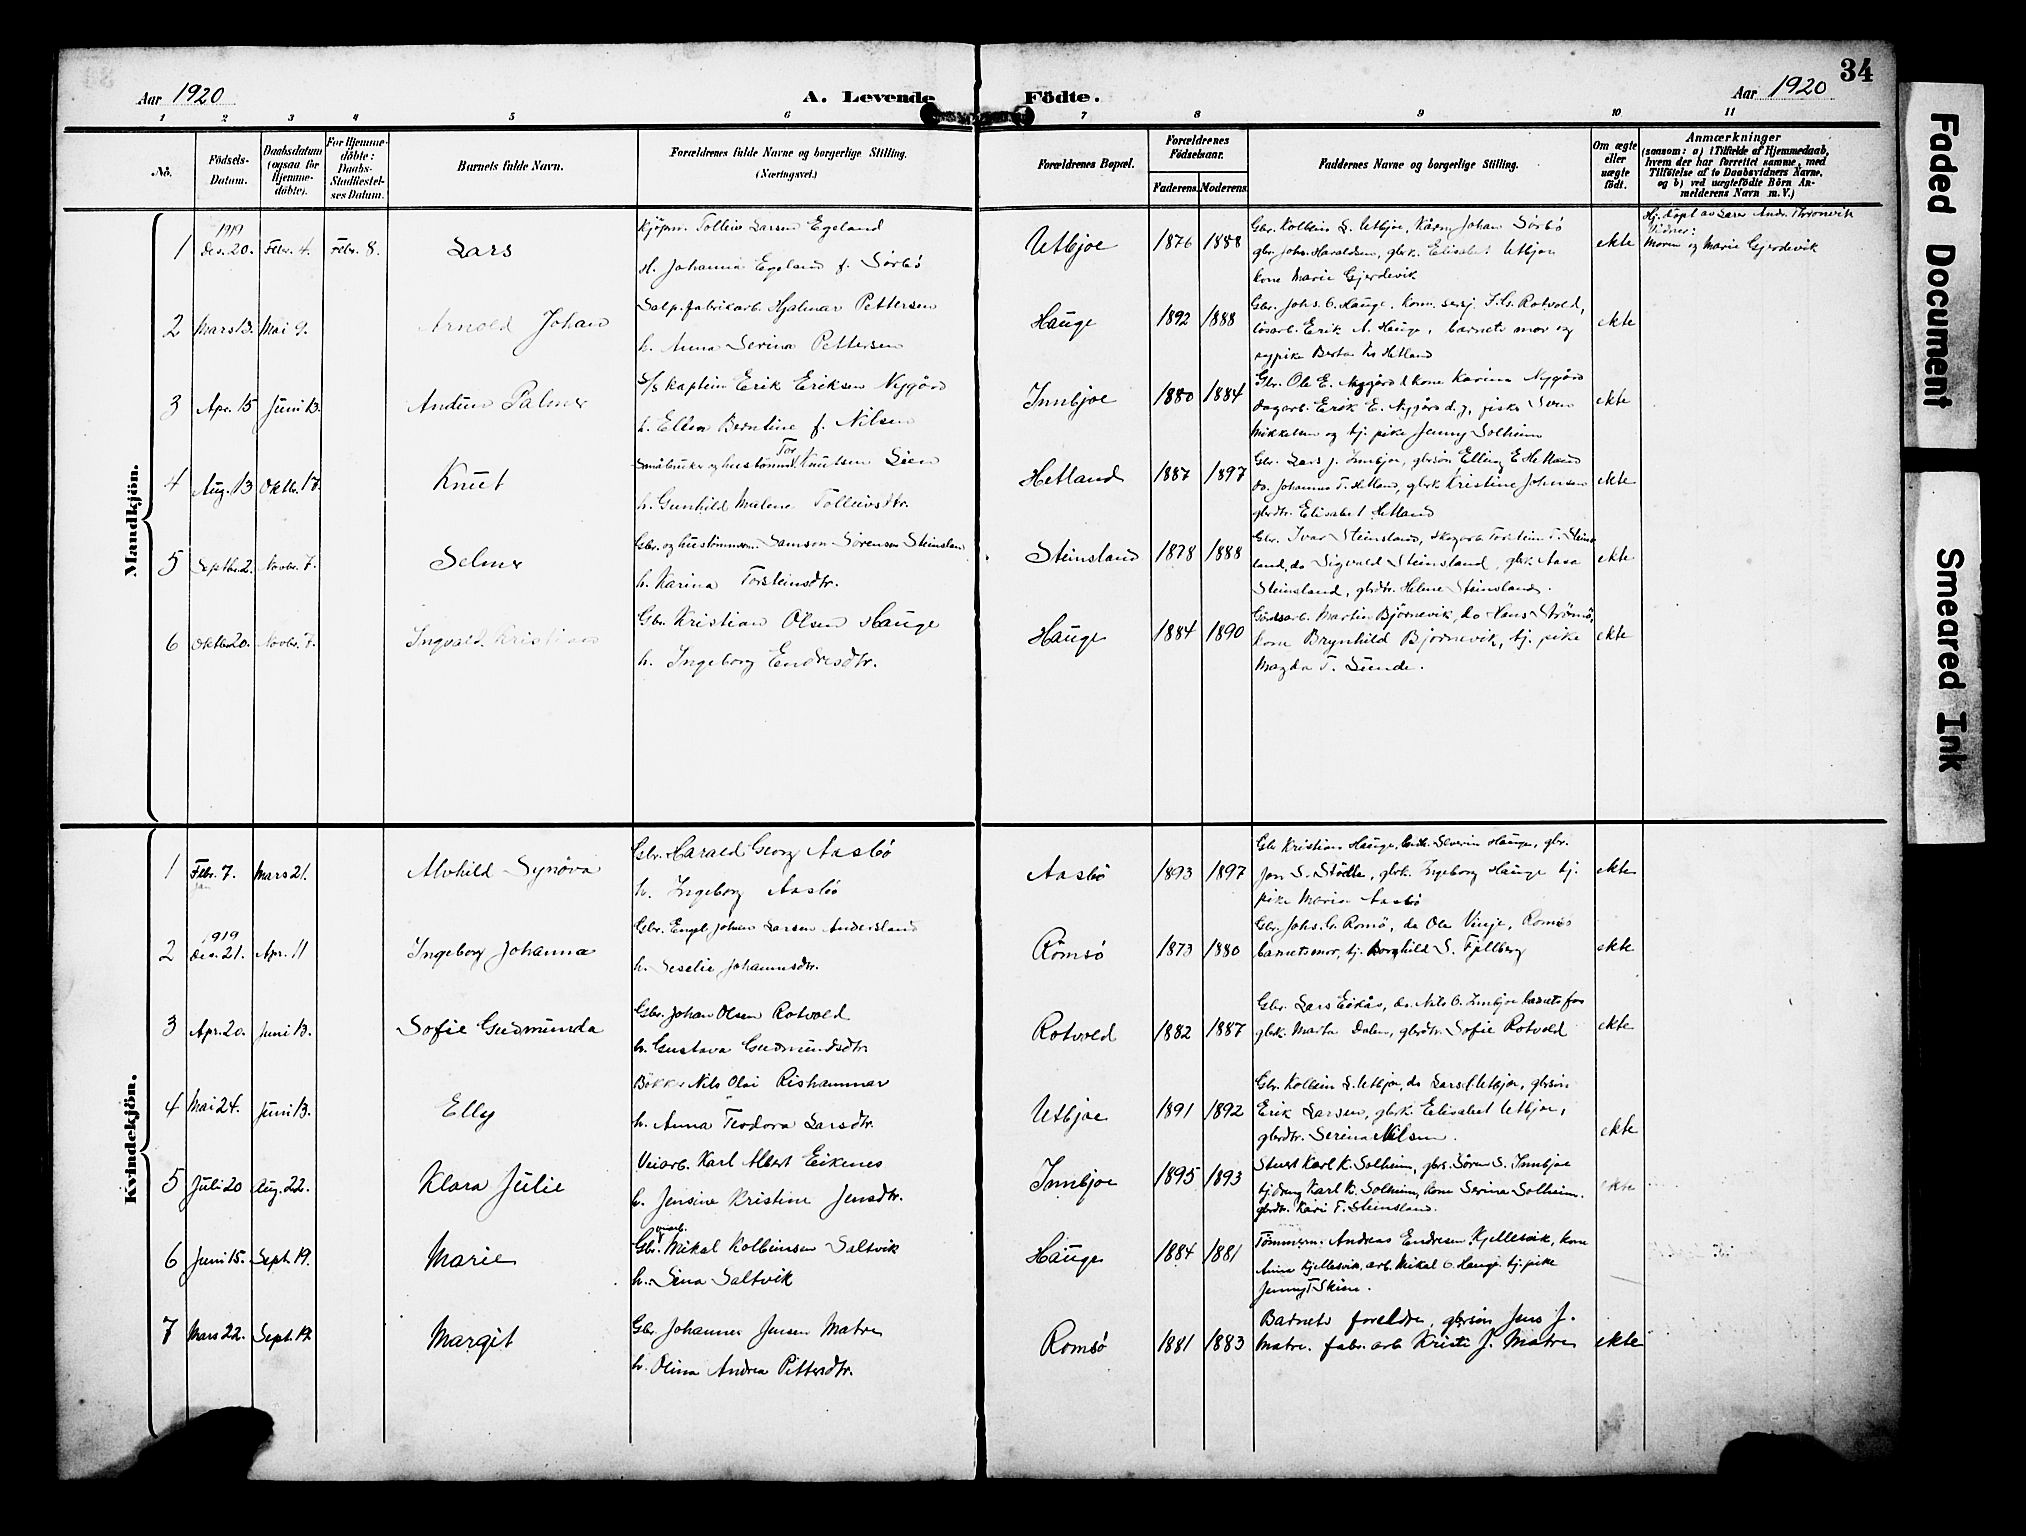 34
Aar 1920
A. Levende Födte.
Aar 1920
1 2 3 4 5 6 7 8 9 10 11
No.
Födsels-Datum.
Daabsdatum (ogsaa for Hjemme-döbte).
For Hjemme-döbte: Daabs-Stadfestel-ses Datum.
Barnets fulde Navn.
Forældrenes fulde Navne og borgerlige Stilling.
(Næringsvei.)
Forældrenes Bopæl.
Forældrenes Födselsaar.
Faderens. Moderens.
Faddernes Navne og borgerlige Stilling.
Om ægte eller uægte födt.
Anmærkninger
(saasom: a) i Tilfælde af Hjemmedaab,
hvem der har forrettet samme, med
Tilföielse af to Daabsvidners Navne,
og b) ved uægtefödte Börn An-
melderens Navn m. V.)
Mandkjön.
1919
1 Des. 20. Febr. 4. Febr. 8. Lars
Kjöpm. Tolleiv Larsen Egeland
H. Johanna Egeland f. Sörbö
Utbjoe 1876 1888
Gbr. Kolbein L. Utbjoe, Johan Sörbö
gbr. Johs. Haraldsen, gbrk. Elisabet Utbjoe
kone Marie Gjerdevik
ekte
Hj. döpt av Lars Andr. Thronevik
Vidner:
Moren og Marie Gjerdevik
2 Mars 13. Mai 9. Arnold Johan
Salp. fabrikarb. Hjalmar Pettersen
h. Anna Serina Pettersen
Hauge 1892 1888
Gbr. Johs. O. Hauge, korn. sersj. Rotvold,
lösarb. Erik A. Hauge, barnets mor og
sypike Berta Hetland
ekte
3 Apr. 15 Juni 13. Palmer
S/s kaptein Erik Eriksen Nygård
h. Ellen Berntine f. Nilsen
Innbjoe 1880 1884
Gbr. Ole E. Nygård & kone Karina Nygård
dagarb. Erik E. Nygård d.y., fisker Sven
Mikkelsen og tj. pike Jenny Solheim
ekte
4 Aug. 13 Oktbr. 17. Knut
Småbruker og hustömm. Tor Knutsen Lien
h. Gunhild Malene Tolleivsdtr.
Hetland 1887 1897
Gbr. Lars J. Innbjoe, gbrsön Elling E. Hetland
do. Johannes T. Hetland, gbrk. Kristine Johnsen
gbrdtr. Elisabet Hetland
ekte
5 Septbr. 2. Novbr. 7. Selmer
Gbr. og hustömmerm. Samson Sörensen Steinsland
h. Karina Torsteinsdtr.
Steinsland 1878 1888
Gbr. Ivar Steinsland, skogarb. Torstein T. Steins-
land, do Sigvald Steinsland, gbrk. Aasa
Steinsland, gbrdtr. Helene Steinsland.
ekte
6 Oktbr. 20. Novbr. 7. Ingvald Kristian
Gbr. Kristian Olsen Hauge
h. Ingeborg Endresdtr.
Hauge 1884 1890
Gårdsarb. Martin Björnevik, do Hans Strömö,
kone Brynhild Björnevik, tj. pike
Magda T. Sunde.
ekte
Kvindekjön.
1 Febr. 7. Mars 21. Alvhild Synöva
Jan
Gbr. Harald Georg Aasbö
h. Ingeborg Aasbö
Aasbö 1893 1897
Gbr Kristian Hauge, Severin Hauge, gbr.
Jon S. Stödle, gbrk. Ingeborg Hauge tj.
pike Maria Aasbö
ekte
1919
2 Des. 21. Apr. 11 Ingeborg Johanna
Gbr. Engel Johan Larsen Andersland
h. Seselie Johannesdtr.
Römsö 1873 1880
Gbr. Johs. G. Romö, do Ola Vinje, Romsö
barnets mor, tj. Borghild S. Fjellberg
ekte
3 Apr. 20. Juni 13. Sofie Gudmunda
Gbr. Johan Olsen Rotvold
h. Gustava Gudmundsdtr.
Rotvold 1882 1887
Gbr. Lars Eikås, do. Nils O. Innbjoe barnets far
gbrk. Marta Dalen, gbrdtr. Sofie Rotvold
ekte
4 Mai 24. Juni 13. Elly
Bökker Nils Olai Rishammar
h. Anna Teodora Larsdtr.
Utbjoe 1891 1892
Gbr. Kolbein L. Utbjoe, do Lars Utbjoe, gbrsön
Erik Larsen, gbrk. Elisabet Utbjoe,
gbrdtr. Serina Nilsen.
ekte
5 Juli 20 Aug. 22. Klara Julie
Veiarb. Karl Albert Eikenes
h. Jensine Kristine Jensdtr.
Innbjoe 1895 1893
Stuert Karl K. Solheim, gbrs. Sören S. Innbjoe
tj. dreng Karl K. Solheim, kone Serina Solheim.
gbrdtr. Kari T. Steinsland.
ekte
6 Juni 15. Sept. 19. Marie
Gbr. veiarb. Mikal Kolbeinsen Saltvik
h. Sina Saltvik
Hauge 1884 1881
Tömmerm. Andreas Endresen Kjellesvik, kone
Anna Kjellesvik, arb. Mikal O. Hauge tj. pike
Jenny T Skien.
7 Mars 22. Sept. 19. Margit
Gbr. Johannes Jensen Matre
h. Olina Andrea Pettersdtr.
Romsö 1881 1883
Barnets foreldre, gbrsön Jens J.
Matre. fabr. arb Kristi J. Matre
ekte
Faded Document
Smeared Ink